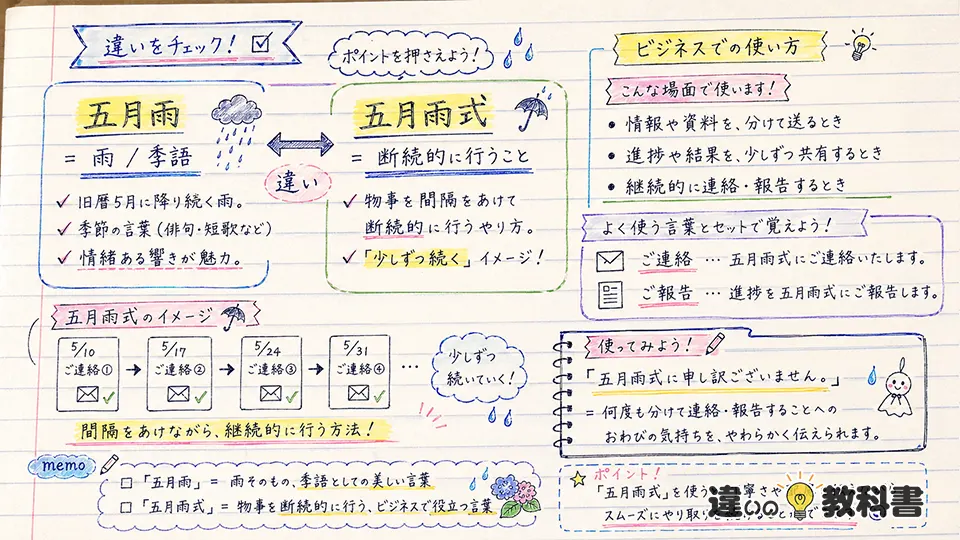 違いをチェック!
ポイントを押さえよう!
五月雨
= 雨 / 季語
旧暦5月に降り続く雨。
季節の言葉(俳句・短歌など)
情緒ある響きが魅力。
違い
五月雨式
= 断続的に行うこと
物事を間隔をあけて
断続的に行うやり方。
「少しずつ続く」イメージ!
五月雨式のイメージ
5/10
ご連絡①
5/17
ご連絡②
5/24
ご連絡③
5/31
ご連絡④
…
少しずつ
続いていく!
間隔をあけながら、継続的に行う方法!
memo
「五月雨」= 雨そのもの、季語としての美しい言葉
「五月雨式」= 物事を断続的に行う、ビジネスで役立つ言葉
ビジネスでの使い方
こんな場面で使います!
• 情報や資料を、分けて送るとき
• 進捗や結果を、少しずつ共有するとき
• 継続的に連絡・報告するとき
よく使う言葉とセットで覚えよう!
ご連絡 … 五月雨式にご連絡いたします。
ご報告 … 進捗を五月雨式にご報告します。
使ってみよう!
「五月雨式に申し訳ございません。」
= 何度も分けて連絡・報告することへの
おわびの気持ちを、やわらかく伝えられます。
ポイント!
「五月雨式」を使う
スムーズにやり取り
違いの教科書